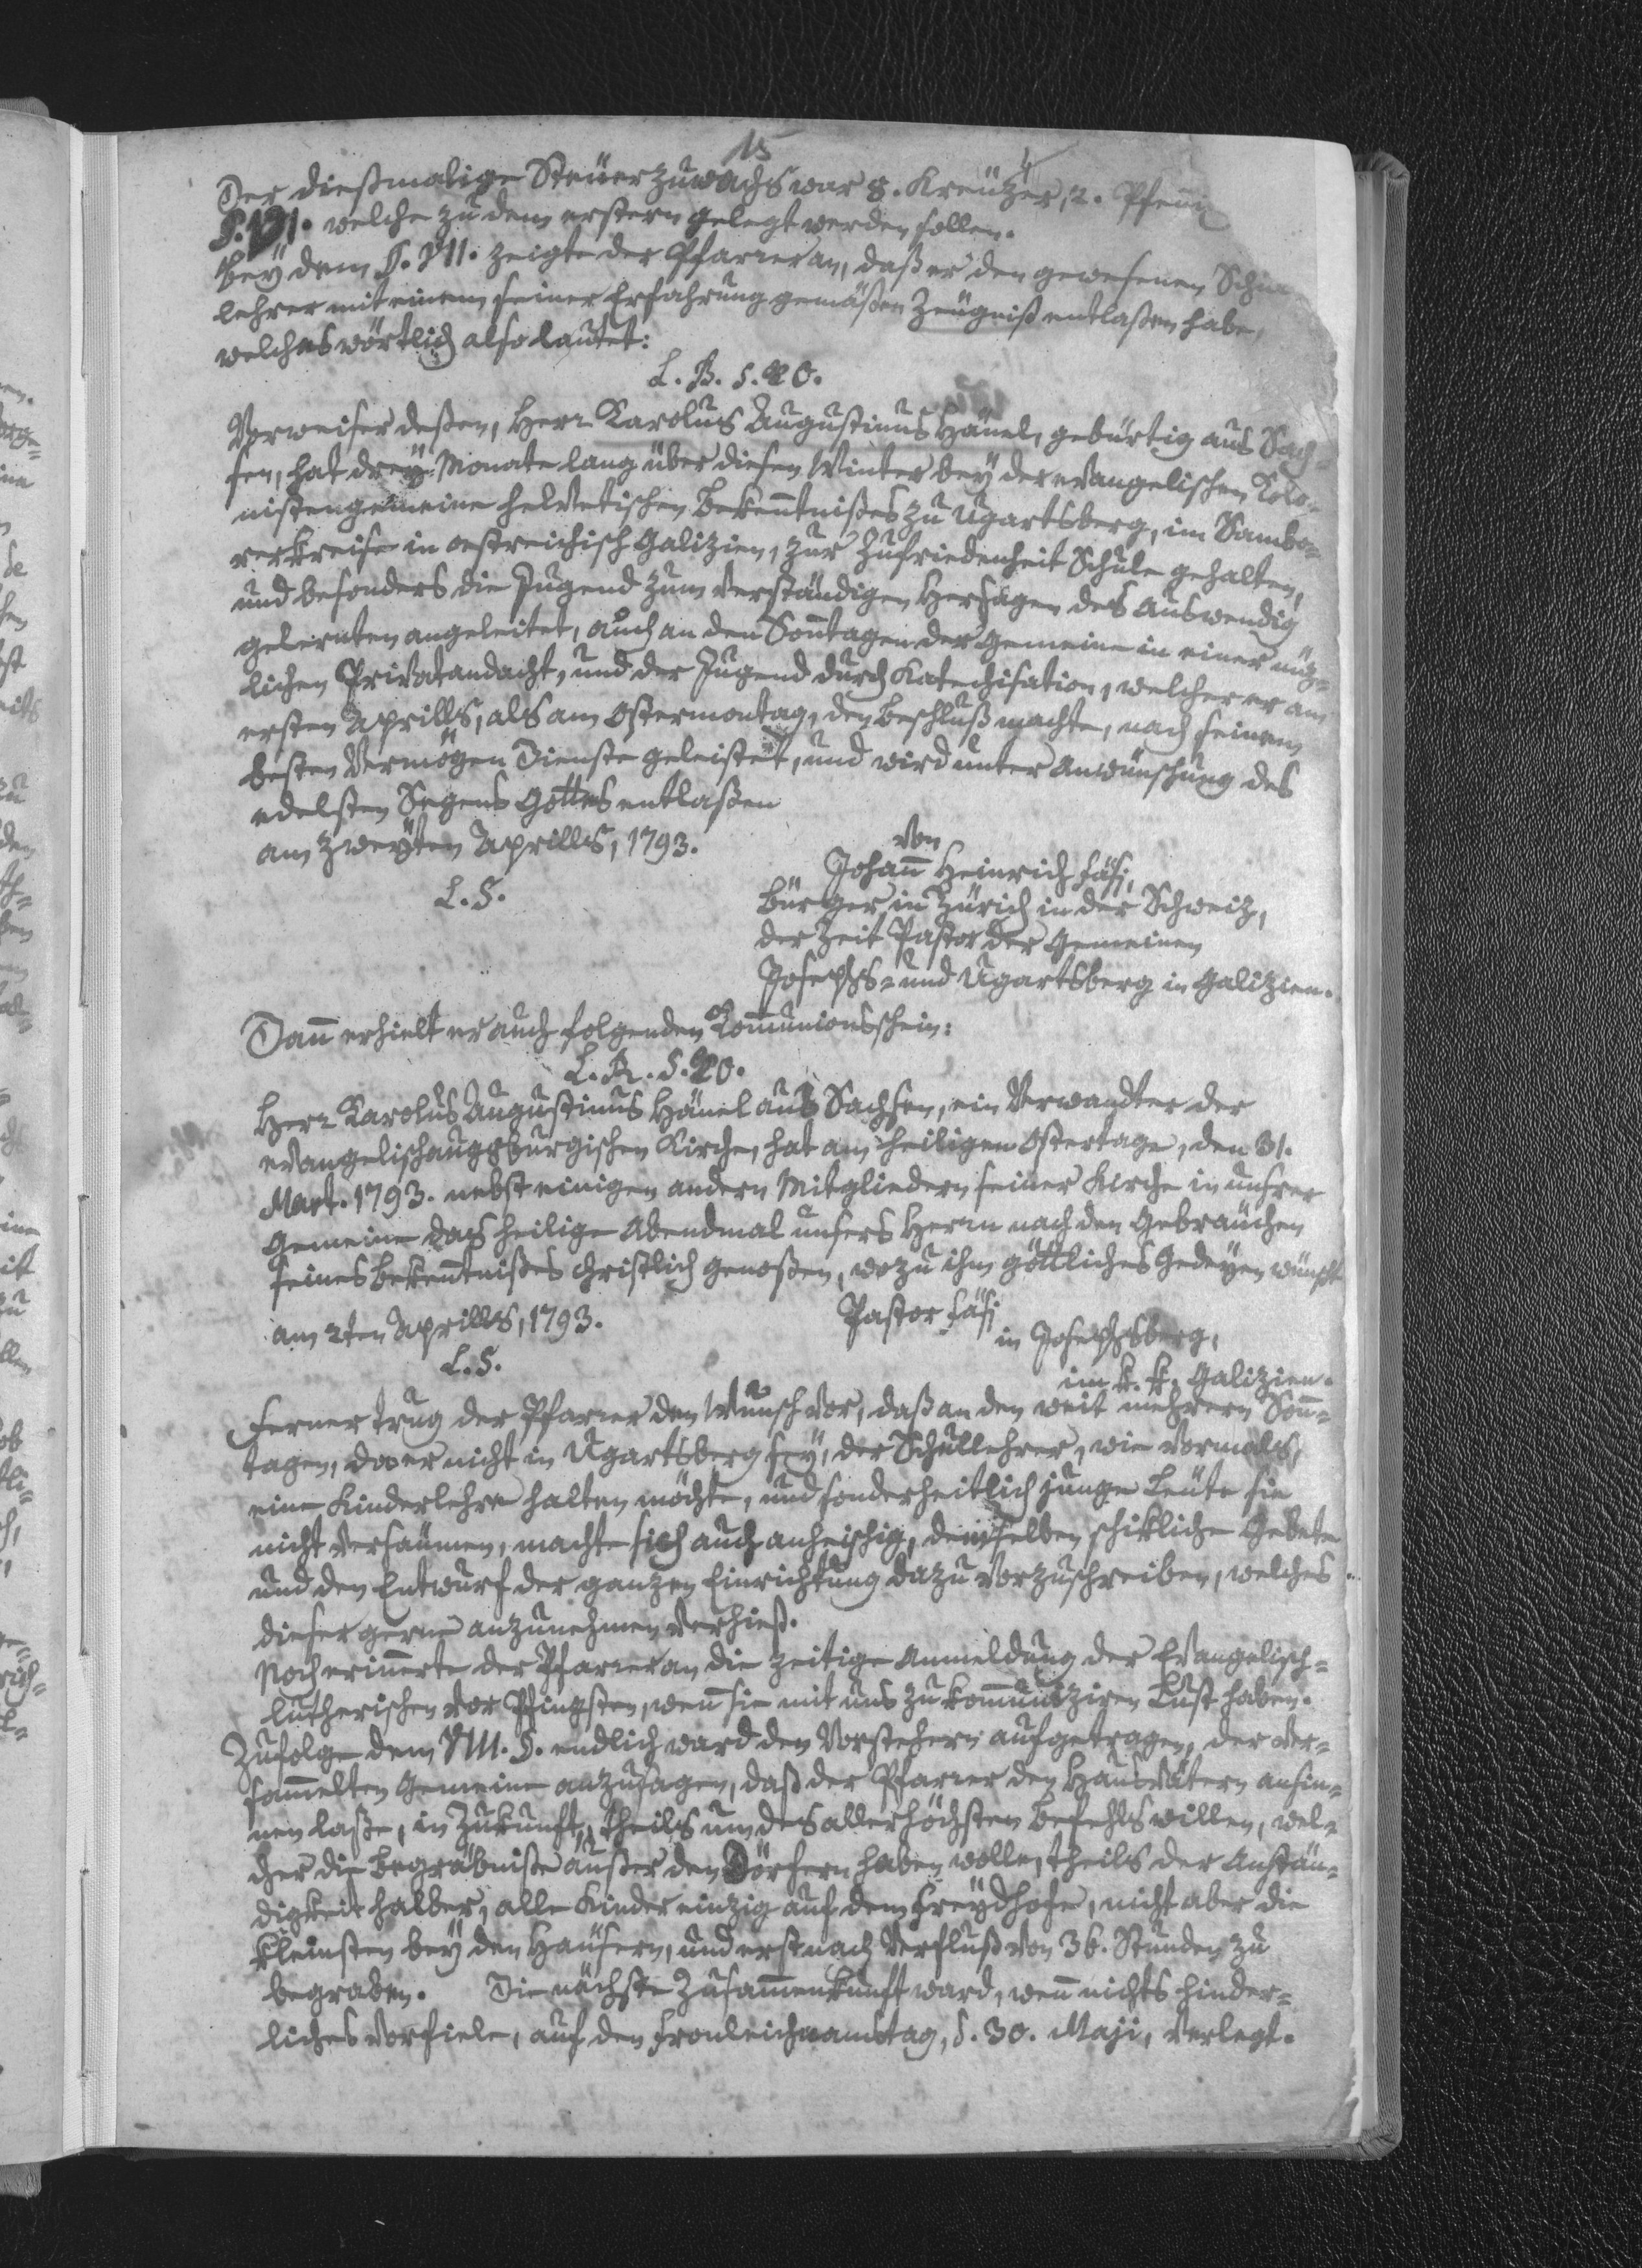 15
4
Der dießmalige Steuerzuwachs war 8. Kreuzer, 2. Pfenni
§.VI. welche zu dem erstern gelegt werden sollen.
Bey dem §. VII. zeigte der Pfarrer an, daß er den gewesenen Schul
lehrer mit einem seiner Erfahrung gemäßen Zeugniß entlaßen habe,
welches wörtlich also lautet:
L. B. S. 
Vorweiser deßen, Herr Karolus Augustinus Hänel, gebürtig aus Sach=
sen, hat drey Monate lang über diesen Winter bey der evangelischen Kolo=
nistengemeine helvetischen Bekentnißes zu Ugartsberg, im Sambo=
rerkreise in oestreichisch Galizien, zur Zufriedenheit Schule gehalten,
und besonders die Jugend zum verständigen Hersagen des auswendig
gelernten angeleitet, auch an den Sontagen der Gemeine in einer nüz=
lichen Privatandacht, und der Jugend durch Katechisation, welcher er am
ersten Aprills, als am Ostermontag, den Beschluß machte, nach seinem
besten Vermögen Dienste geleistet, und wird unter Anwünschung des
edelsten Segens Gottes entlaßen
am zweyten Aprills, 1793.
von
Johann Heinrich Fäsi,
L. S.
Bürger in Zürich in der Schweiz,
der Zeit Pastor der Gemeinen
Josephs= und Ugartsberg in Galizien.
Dann erhielt er auch folgenden Kommunionsschein:
L. B. S. 
Herr Karolus Augustinus Hänel aus Sachsen, ein Verwandter der
evangelischaugsburgischen Kirche, hat am heiligen Ostertage, den 31.
Mart. 1793. nebst einigen andern Mitgliedern seiner Kirche in unsrer
Gemeine das heilige Abendmal unsers Herrn nach den Gebräuchen
seines Bekentnißes christlich genoßen, wozu ihm göttliches Gedeyen wünscht
am 2ten Aprills, 1793.
Pastor Fäsi
in Josephsberg,
L. S.
im k. k. Galizien.
Ferner trug der Pfarrer den Wunsch vor, daß an den weit mehrern Son=
tagen, da er nicht in Ugartsberg sey, der Schullehrer, wie vormals,
eine Kinderlehre halten möchte, und sonderheitlich junge Leute sie
nicht versäumen, machte sich auch anheischig, demselben schikliche Gebete
und den Entwurf der ganzen Einrichtung dazu vorzuschreiben, welches
dieser gerne anzunehmen verhieß.
Noch erinnerte der Pfarrer an die zeitige Anmeldung der Evangelisch=
lutherischen vor Pfingsten, wenn sie mit uns zu kommuniziren Lust haben.
Zufolge dem VIII. §. endlich ward den Vorstehern aufgetragen, der ver=
sammelten Gemeine anzusagen, daß der Pfarrer den Hausvätern ansin=
nen laße, in Zukunft, theils um des allerhöchsten Befehls willen, wel=
cher die Begräbniße außer den Dörfern haben wolle, theils der Anstän=
digkeit halber, alle Kinder einzig auf dem Freydhofe, nicht aber die
kleinsten bey den Häusern, und erst nach Verfluß von 36. Stunden zu
begraben. Die nächste Zusammenkunft ward, wenn nichts hinder=
liches vorfiele, auf den Fronleichnamstag, d. 30. Maji, verlegt.